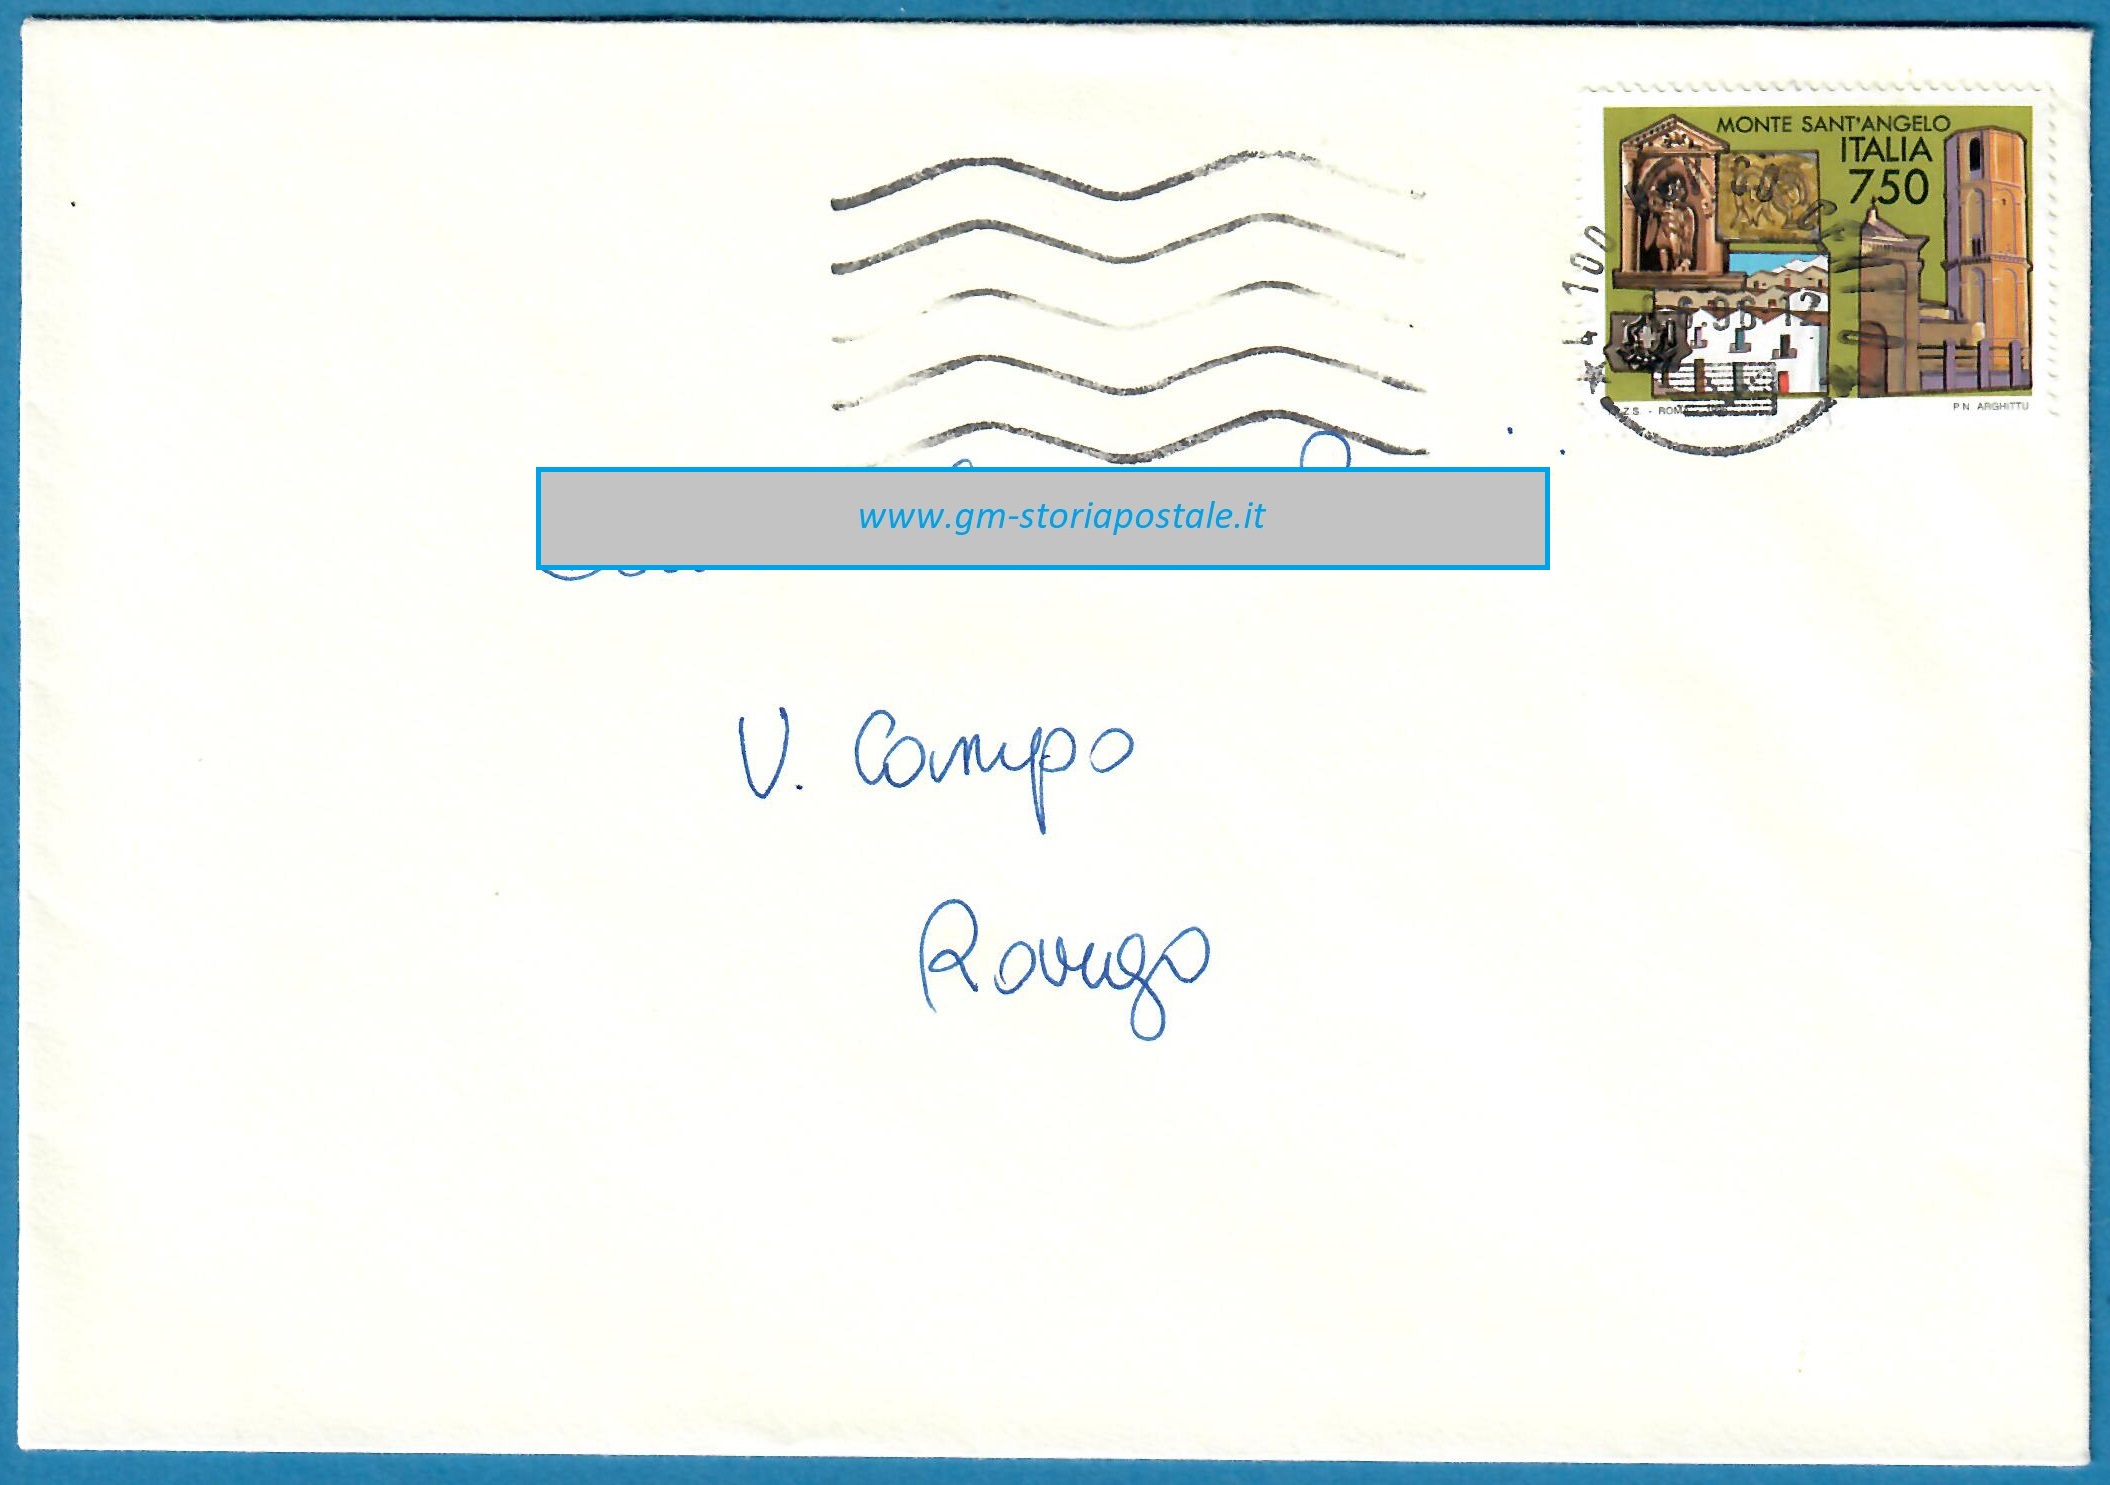 MONTE SANT'ANGELO
ITALIA
750
44100
6.96-12
P.N. ARGHITTU
www.gm-storiapostale.it
V. Campo
Rovigo